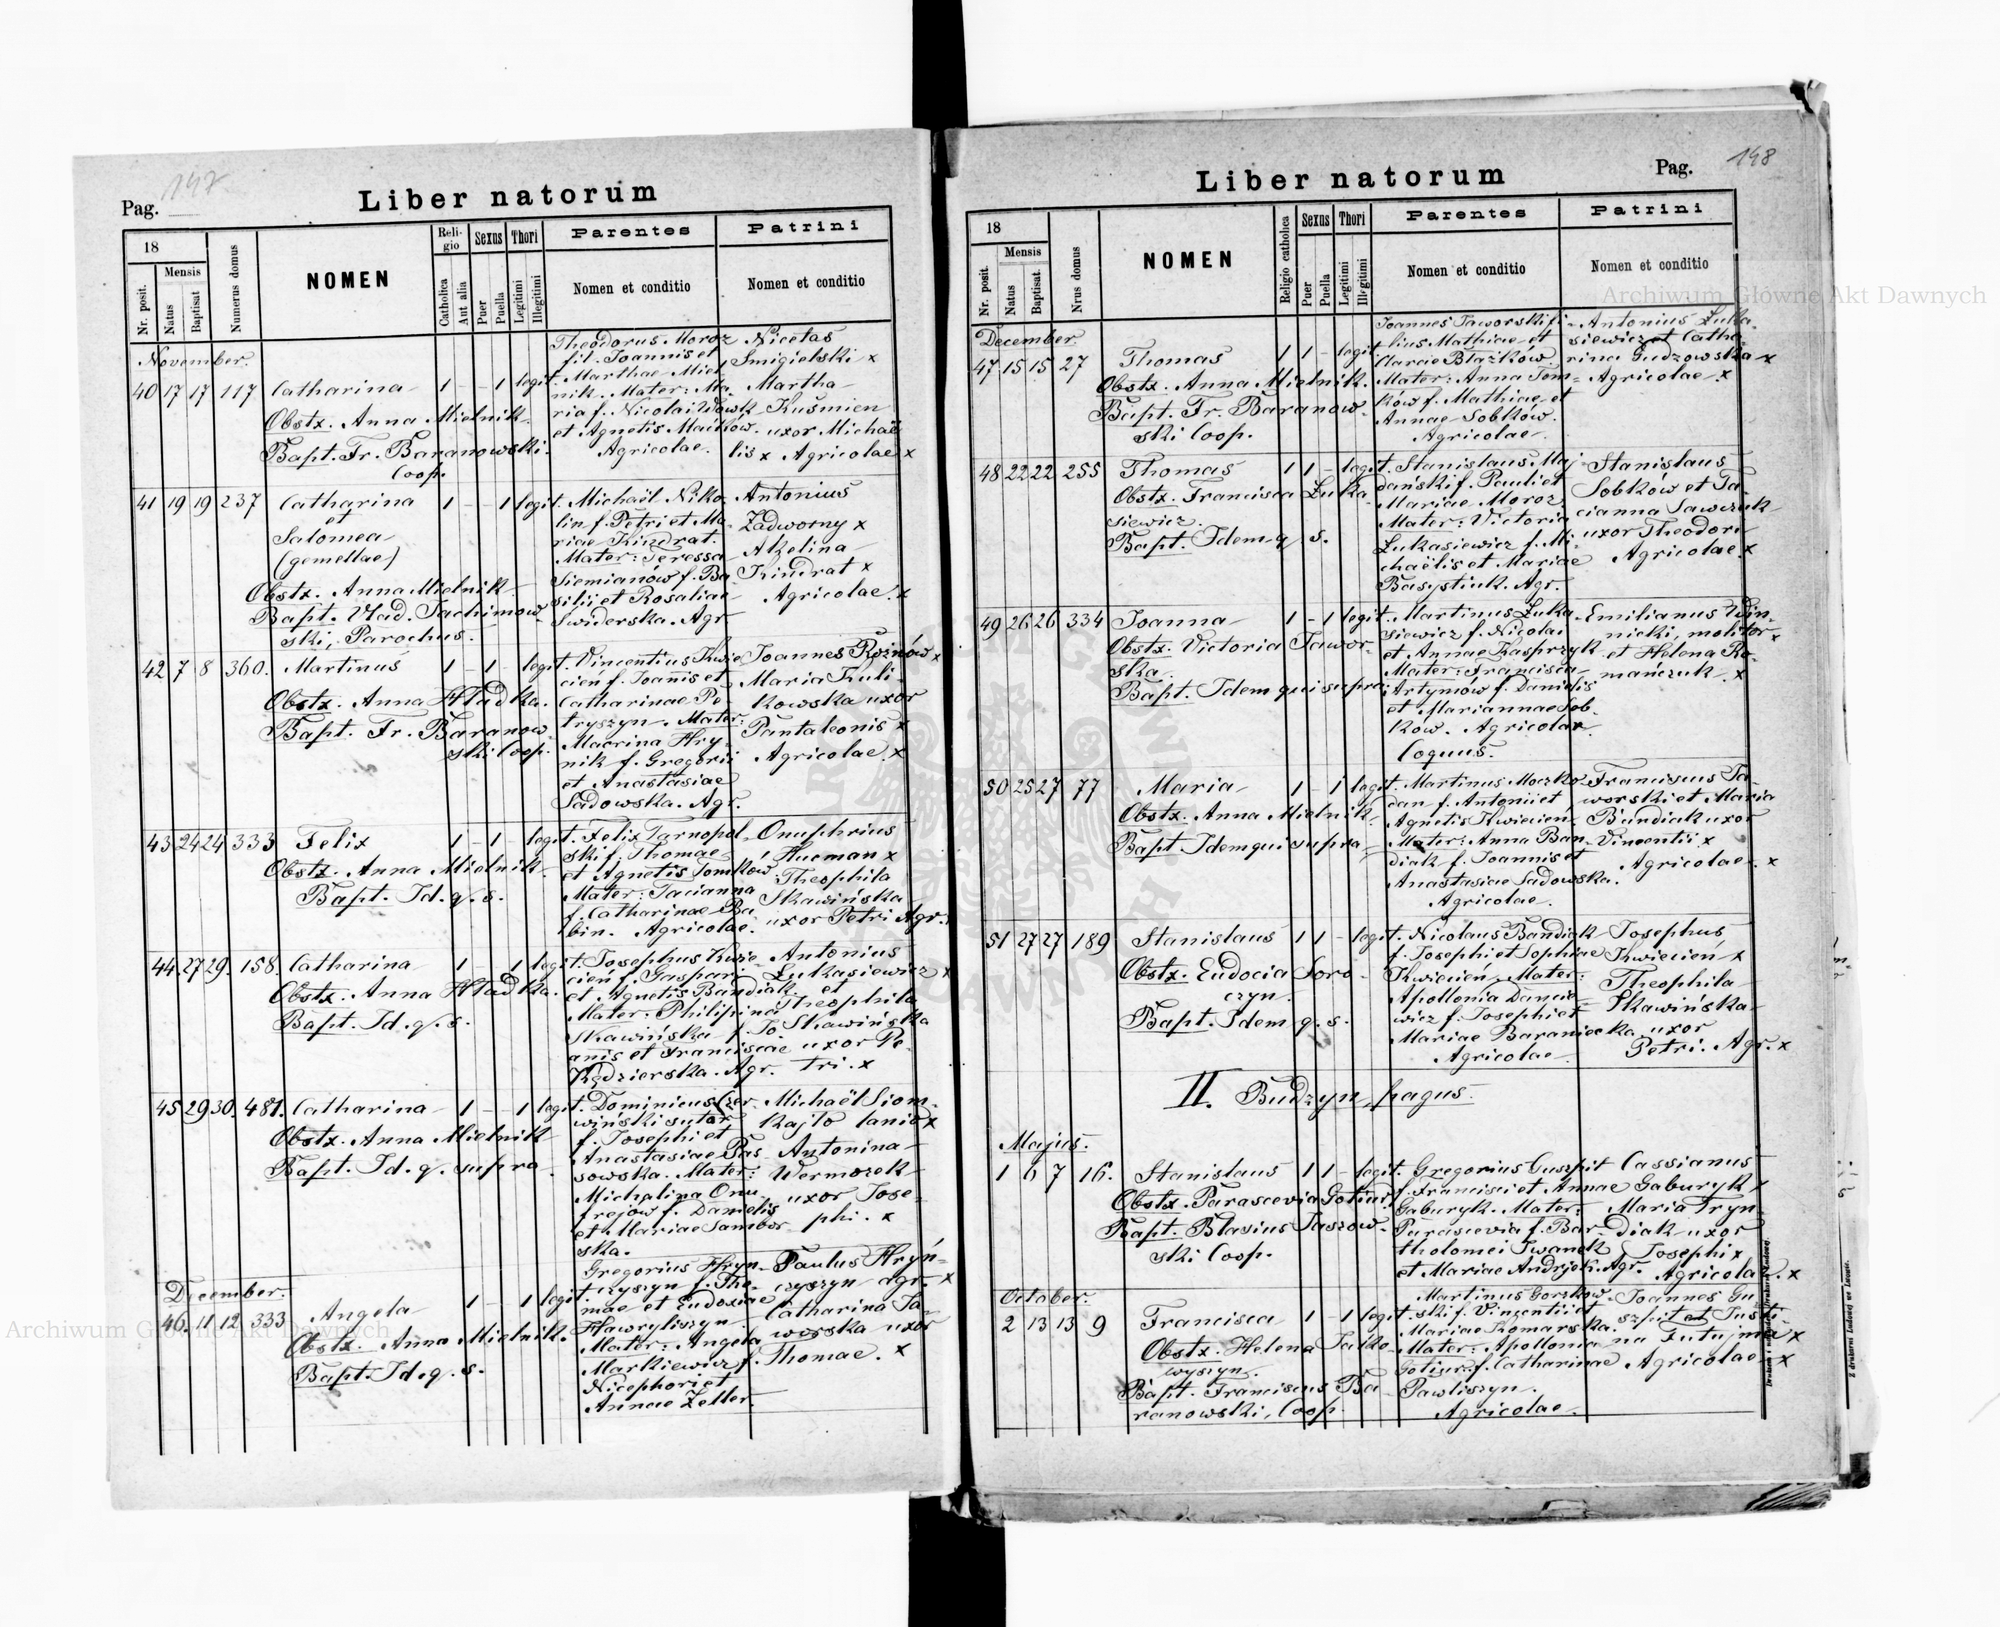 147
Pag.
Liber natorum
18
Mensis
Nr. posit.
Natus
Baptisat
Numerus domus
NOMEN
Reli-
gio
Catholica
Aut alia
Sexus
Puer
Puella
Thori
Legitimi
Illegitimi
Parentes
Nomen et conditio
Patrini
Nomen et conditio
November.
40 17 17 117 Catharina 1 - - 1 legit.
Obstx. Anna Mielnik.
Bapt. Fr. Baranowski.
Coop.
Theodorus Moroz
fil. Joannis et
Marthae Miel-
nik. Mater: Ma-
ria f. Nicolai Wowk
et Agnetis Maćków.
Agricolae.
Nicetas
Smigielski x
Martha
Kuśmien
uxor Michaë
lis x Agricolae x
41 19 19 237 Catharina 1 - - 1 legit.
et
Salomea
(gemellae)
Obstx. Anna Mielnik.
Bapt. Vlad. Jachimow-
ski, Parochus.
Michaël Niko-
lin f. Petri et Ma-
riae Kindrat.
Mater: Teressa
Siemianów f. Ba-
silii et Rosaliae
Swiderska. Agr.
Antonius
Zadworny x
Akelina
Kindrat x
Agricolae. x
42 7 8 360. Martinus 1 - 1 - legit.
Obstx. Anna Hładka.
Bapt. Fr. Baranow-
ski Coop.
Vincentius Kwie-
cień f. Joanis et
Catharinae Pe-
tryszyn. Mater:
Macrina Hry-
nik f. Gregorii
et Anastasiae
Sadowska. Agr.
Joannes Rożnów x
Maria Kuli-
kowska uxor
Pantaleonis x
Agricolae. x
43 24 24 333 Felix 1 - 1 - legit.
Obstx. Anna Mielnik.
Bapt. Id. q. s.
Felix Tarnopol-
ski f. Thomae
et Agnetis Tomków.
Mater: Tacianna
f. Catharinae Ba-
bin. Agricolae.
Onuphrius
Hucman x
Theophila
Skawińska
uxor Petri Agr.
44 27 29. 158. Catharina 1 - - 1 legit.
Obstx. Anna Hładka.
Bapt. Id. q. s.
Josephus Kwie-
cień f. Gaspari
et Agnetis Bandiak.
Mater: Philipina
Skawińska f. Jo-
anis et Franciscae
Kędzierska. Agr.
Antonius
Łukasiewicz x
et
Theophila
Skawińska
uxor Pe-
tri. x
45 29 30. 481. Catharina 1 - - 1 legit.
Obstx. Anna Mielnik
Bapt. Id. q. supra.
Dominicus Czer-
wiński sutor
f. Josephi et
Anastasiae Pas-
sowska. Mater:
Michalina Onu-
frejow f. Danielis
et Mariae Sambor-
ska.
Michaël Siom-
kajło lanio x
Antonina
Wermozek
uxor Jose-
phi. x
December.
46. 11 12 333 Angela 1 - - 1 legit.
Obstx. Anna Mielnik.
Bapt. Id. q. s.
Gregorius Hryn-
czyszyn f. Tho-
mae et Eudoxiae
Hawryliszyn.
Mater: Angela
Markiewicz f.
Nicephori et
Annae Zeller.
Paulus Hryń-
czyszyn agr. x
Catharina Ja-
worska uxor
Thomae. x
148
Pag.
Liber natorum
18
Mensis
Nr. posit.
Natus
Baptisat.
Nrus domus
NOMEN
Religio catholica
Sexus
Puer
Puella
Thori
Legitimi
Illegitimi
Parentes
Nomen et conditio
Patrini
Nomen et conditio
December.
47 15 15 27 Thomas 1 1 - legit.
Obstx. Anna Mielnik.
Bapt. Fr. Baranow-
ski Coop.
Joannes Jaworski fi-
lius Mathiae et
Mariae Błażków
Mater: Anna Tom-
ków f. Mathiae et
Annae Sobków.
Agricolae.
Antonius Łuka-
siewicz et Catha-
rina Gudzowska x
Agricolae. x
48 22 22 255 Thomas 1 1 - legit.
Obstx. Francisca Łuka-
siewicz.
Bapt. Idem q. s.
Stanislaus Maj-
dański f. Pauli et
Mariae Moroz
Mater: Victoria
Łukasiewicz f. Mi-
chaëlis et Mariae
Basystiuk. Agr.
Stanislaus
Sobków et Ta-
cianna Sawczuk
uxor Theodori
Agricolae. x
49 26 26 334 Joanna 1 - 1 legit.
Obstx. Victoria Jawor-
ska.
Bapt. Idem qui supra.
Martinus Łuka-
siewicz f. Nicolai
et Annae Kasprzyk
Mater: Francisca
Artymów f. Danielis
et Mariannae Sob-
ków. Agricolae
Coquus.
Emilianus Win-
nicki, molitor x
et Helena Ro-
mańczuk. x
50 25 27 77 Maria 1 - 1 legit.
Obstx. Anna Mielnik.
Bapt. Idem qui supra
Martinus Moczko-
dan f. Antonii et
Agnetis Kwiecien.
Mater: Anna Ban-
diak f. Joannis et
Anastasiae Sadowska.
Agricolae.
Franciscus Ja-
worski et Maria
Bandiak uxor
Vincentii x
Agricolae. x
51 27 27 189 Stanislaus 1 1 - legit.
Obstx. Eudocia Soro-
czyn.
Bapt. Idem q. s.
Nicolaus Bandiak
f. Josephi et Sophiae
Kwiecien. Mater:
Apollonia Dance-
wicz f. Josephi et
Mariae Baraniecka
Agricolae.
Josephus
Kwiecień x
Theophila
Skawińska
uxor
Petri. Agr. x
II. Budzyn, pagus.
Majus.
1 6 7 16. Stanislaus 1 1 - legit.
Obstx. Parascevia Gotiur.
Bapt. Blasius Jaszow-
ski Coop.
Gregorius Guszpit
f. Francisci et Annae
Gaburyk. Mater:
Parascevia f. Bar-
tholomei Iwanek
et Mariae Andrjok. Agr.
Cassianus
Gaburyk x
Maria Fryn-
diak uxor
Josephi x
Agricolae. x
October.
2 13 13 9 Francisca 1 - 1 legit.
Obstx. Helena Jatko-
wysyn.
Bapt. Franciscus Ba-
ranowski, Coop.
Martinus Gorzkow-
ski f. Vincentii et
Mariae Komarska.
Mater: Apollonia
Gotiur f. Catharinae
Pawliszyn.
Agricolae.
Joannes Gu-
szpit et Justi-
na Futujma x
Agricolae x
Z drukarni Ludowej we Lwowie.
Archiwum Główne Akt Dawnych
Archiwum Główne Akt Dawnych